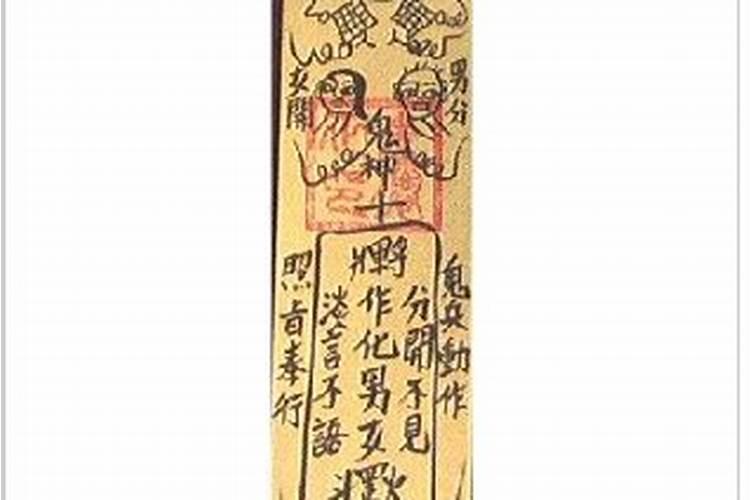 男分
女開
鬼神士
鬼兵動作
分開不見
作化男女
淡言不語
照旨奉行